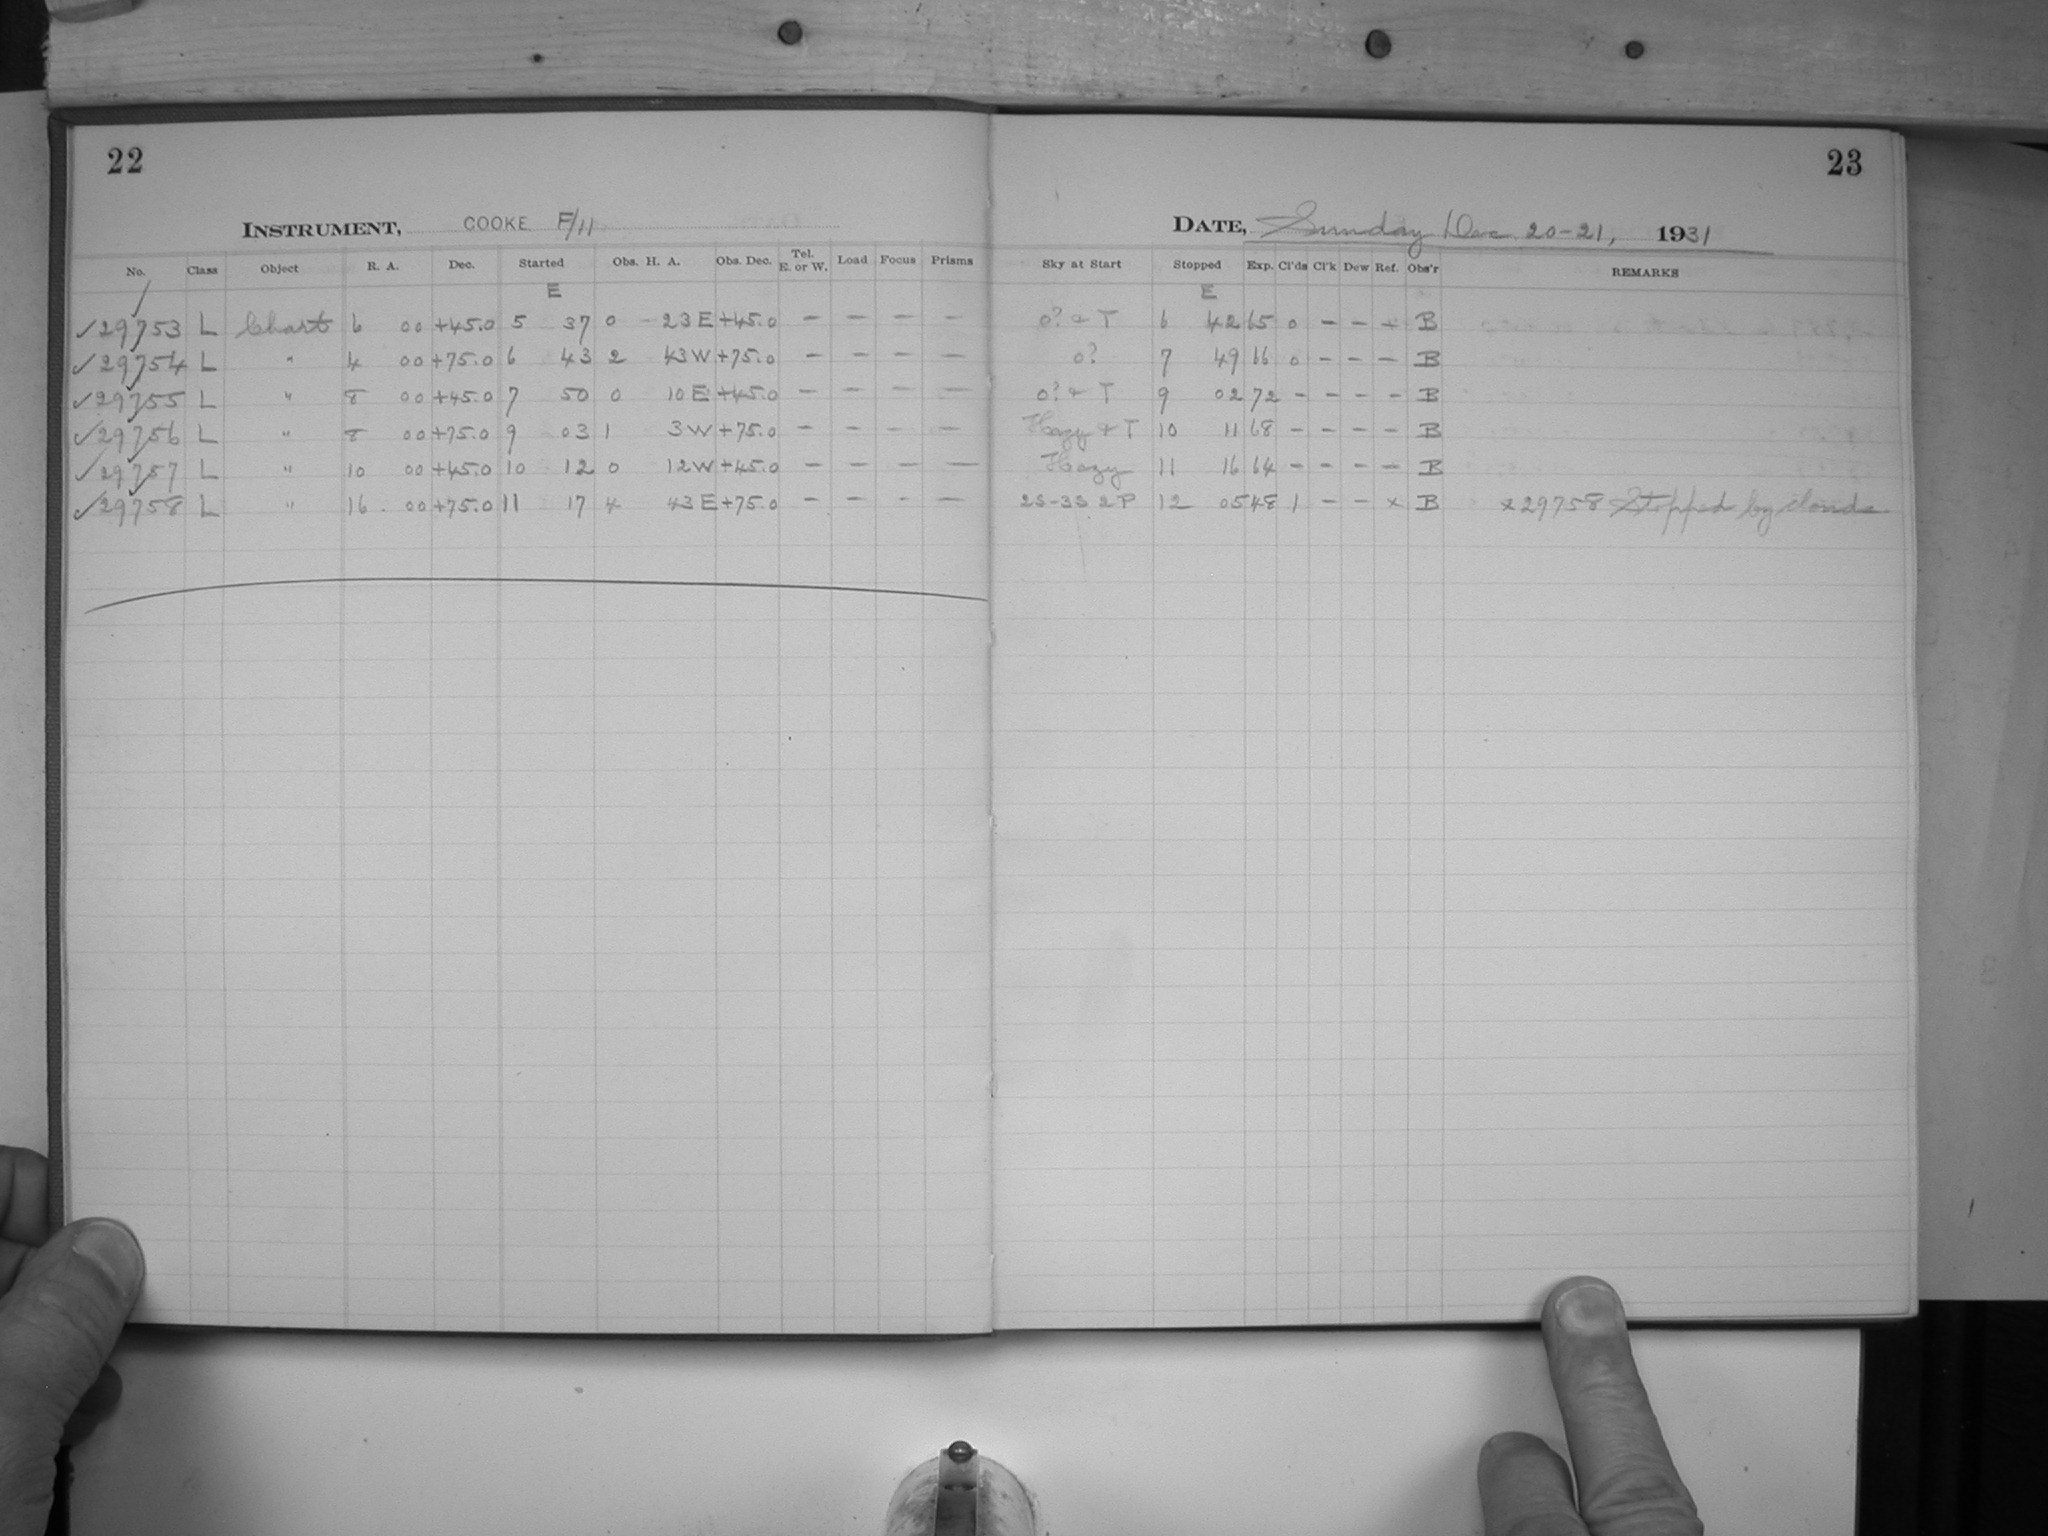 22
INSTRUMENT, COOKE F/11
No. Class Object R. A. Dec. Started Obs. H. A. Obs. Dec. Tel. E. or W. Load Focus Prisms
E
✓29753 L Chart 6 00 +45.0 5 37 0 23E +45.0 – – – –
✓29754 L " 4 00 +75.0 6 43 2 43W +75.0 – – – –
✓29755 L " 8 00 +45.0 7 50 0 10E +45.0 – – – –
✓29756 L " 8 00 +75.0 9 03 1 3W +75.0 – – – –
✓29757 L " 10 00 +45.0 10 12 0 12W +45.0 – – – –
✓29758 L " 16 00 +75.0 11 17 4 43E +75.0 – – – –
23
DATE, Sunday Dec 20-21, 1931
Sky at Start Stopped Exp. Cl'ds Cl'k Dew Ref. Obs'r REMARKS
E
0? & T 6 42 65 0 – – – B
0? 7 49 66 0 – – – B
0? & T 9 02 72 – – – – B
Hazy & T 10 11 68 – – – – B
Hazy 11 16 64 – – – – B
2S-3S 2P 12 05 48 1 – – x B x29758 Stopped by clouds